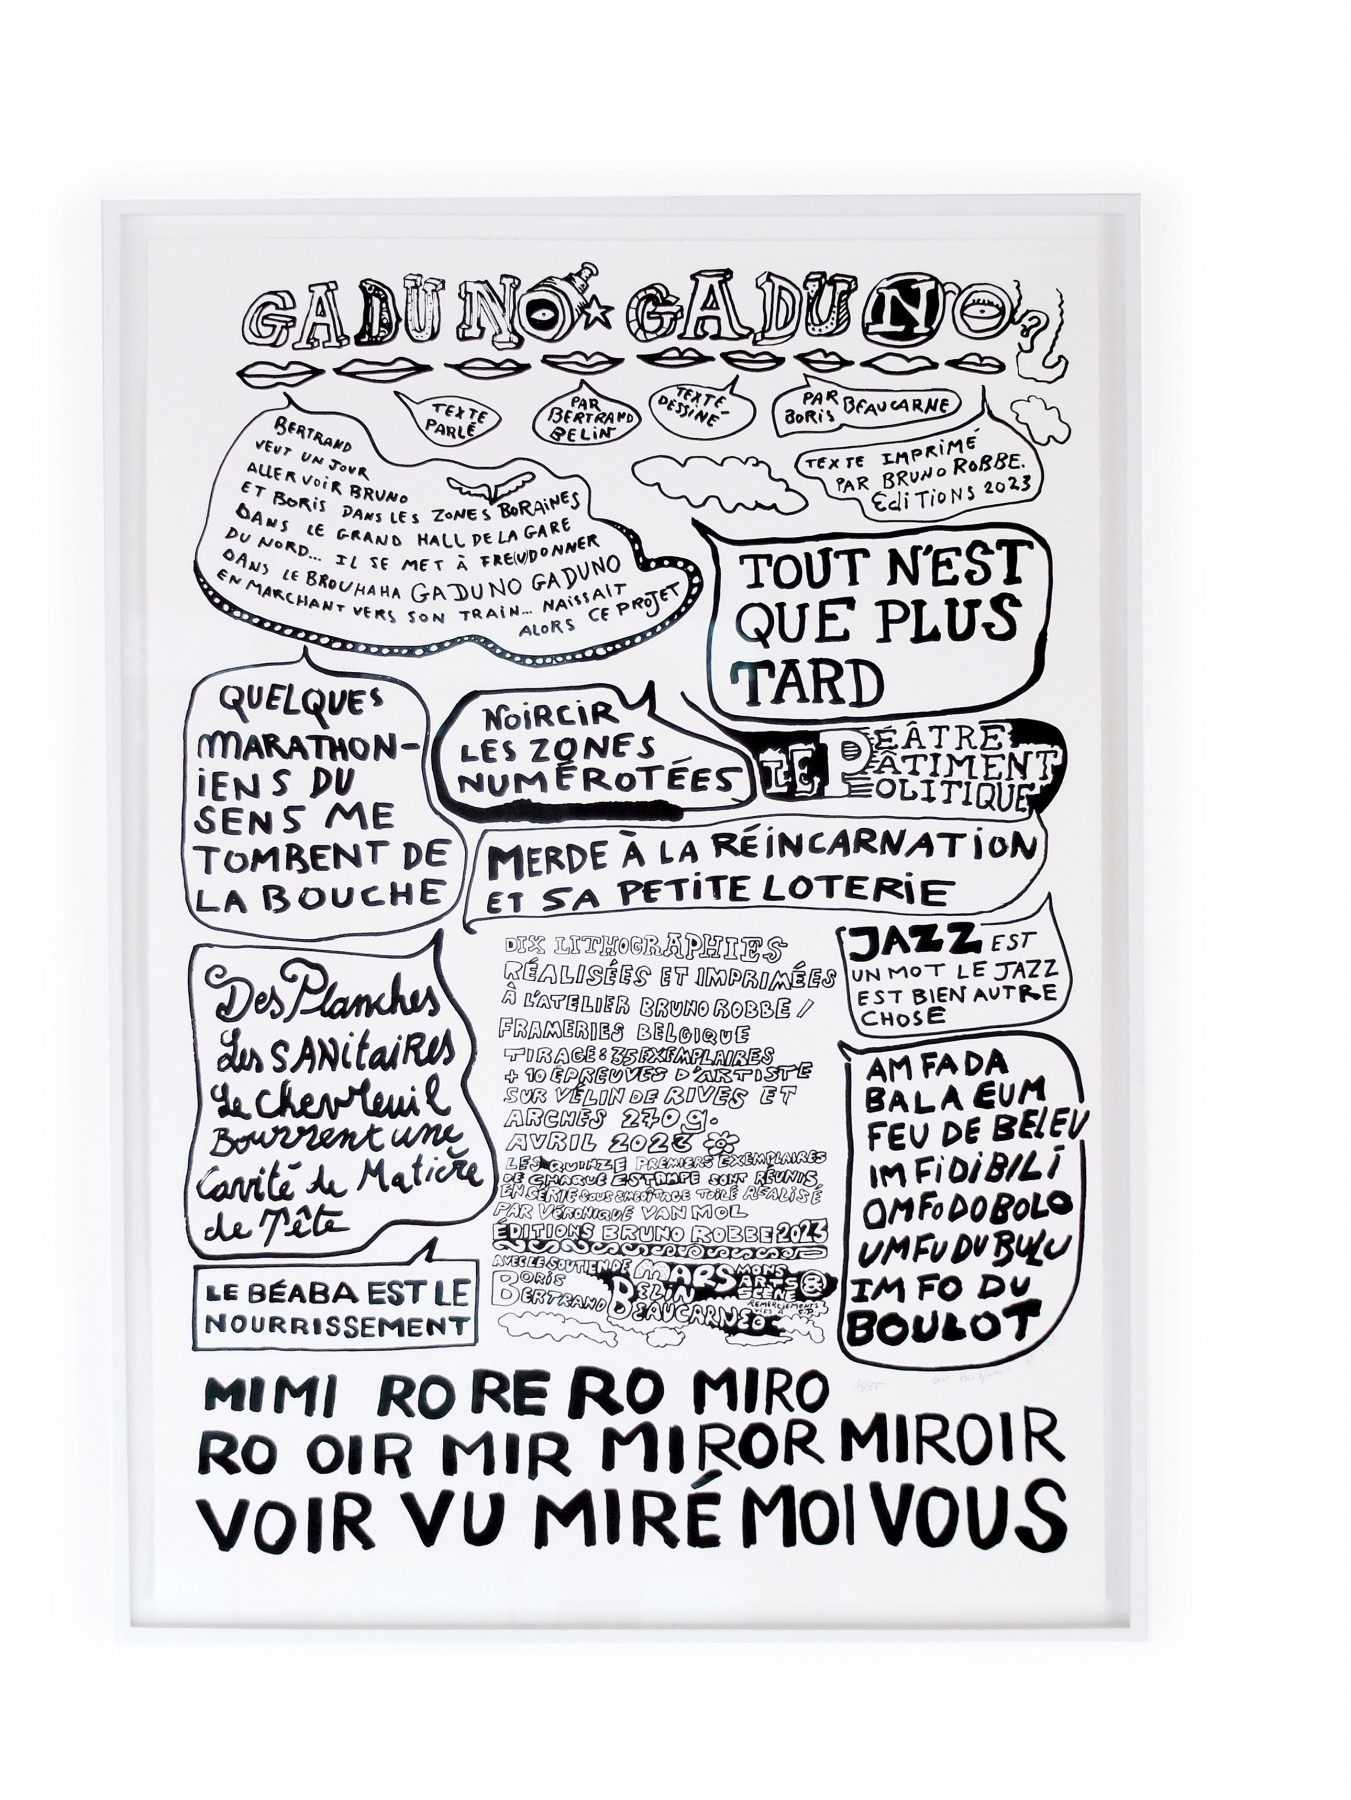 GADUNO GADUNO
TEXTE
PARLÉ
PAR
BERTRAND
BELIN
TEXTE
DESSINÉ
PAR
BORIS BEAUCARNE
TEXTE IMPRIMÉ
PAR BRUNO ROBBE.
EDITIONS 2023
BERTRAND
VEUT UN JOUR
ALLER VOIR BRUNO
ET BORIS DANS LES ZONES BORAINES
DANS LE GRAND HALL DE LA GARE
DU NORD... IL SE MET À FRE(U)DONNER
DANS LE BROUHAHA GADUNO GADUNO
EN MARCHANT VERS SON TRAIN... NAISSAIT
ALORS CE PROJET
TOUT N'EST
QUE PLUS
TARD
QUELQUES
MARATHON-
IENS DU
SENS ME
TOMBENT DE
LA BOUCHE
NOIRCIR
LES ZONES
NUMÉROTÉES
LE PÉÂTRE
PÂTIMENT
POLITIQUE
MERDE À LA RÉINCARNATION
ET SA PETITE LOTERIE
Des Planches
Les SANitaiREs
Le chevreuil
Bourrent une
Cavité de Matière
de Tête
DIX LITHOGRAPHIES
RÉALISÉES ET IMPRIMÉES
À L'ATELIER BRUNO ROBBE /
FRAMERIES BELGIQUE
TIRAGE: 35 EXEMPLAIRES
+ 10 ÉPREUVES D'ARTISTE
SUR VÉLIN DE RIVES ET
ARCHES 270g.
AVRIL 2023
LES QUINZE PREMIERS EXEMPLAIRES
DE CHAQUE ESTAMPE SONT RÉUNIS
EN SÉRIE SOUS EMBOÎTAGE TOILÉ RÉALISÉ
PAR VÉRONIQUE VAN MOL
ÉDITIONS BRUNO ROBBE 2023
AVEC LE SOUTIEN DE MARS MONS
ARTS
SCÈNE
BORIS
BERTRAND
BELIN
BEAUCARNE
REMERCIEMENTS
JAZZ EST
UN MOT LE JAZZ
EST BIEN AUTRE
CHOSE
AM FA DA
BALA EUM
FEU DE BELEU
IM FiDiBiLi
OMFoDOBOLO
UMFU DU BULU
IM FO DU
BOULOT
LE BÉABA EST LE
NOURRISSEMENT
MIMI RO RE RO MIRO
RO OIR MIR MIROR MIROIR
VOIR VU MIRÉ MOI VOUS